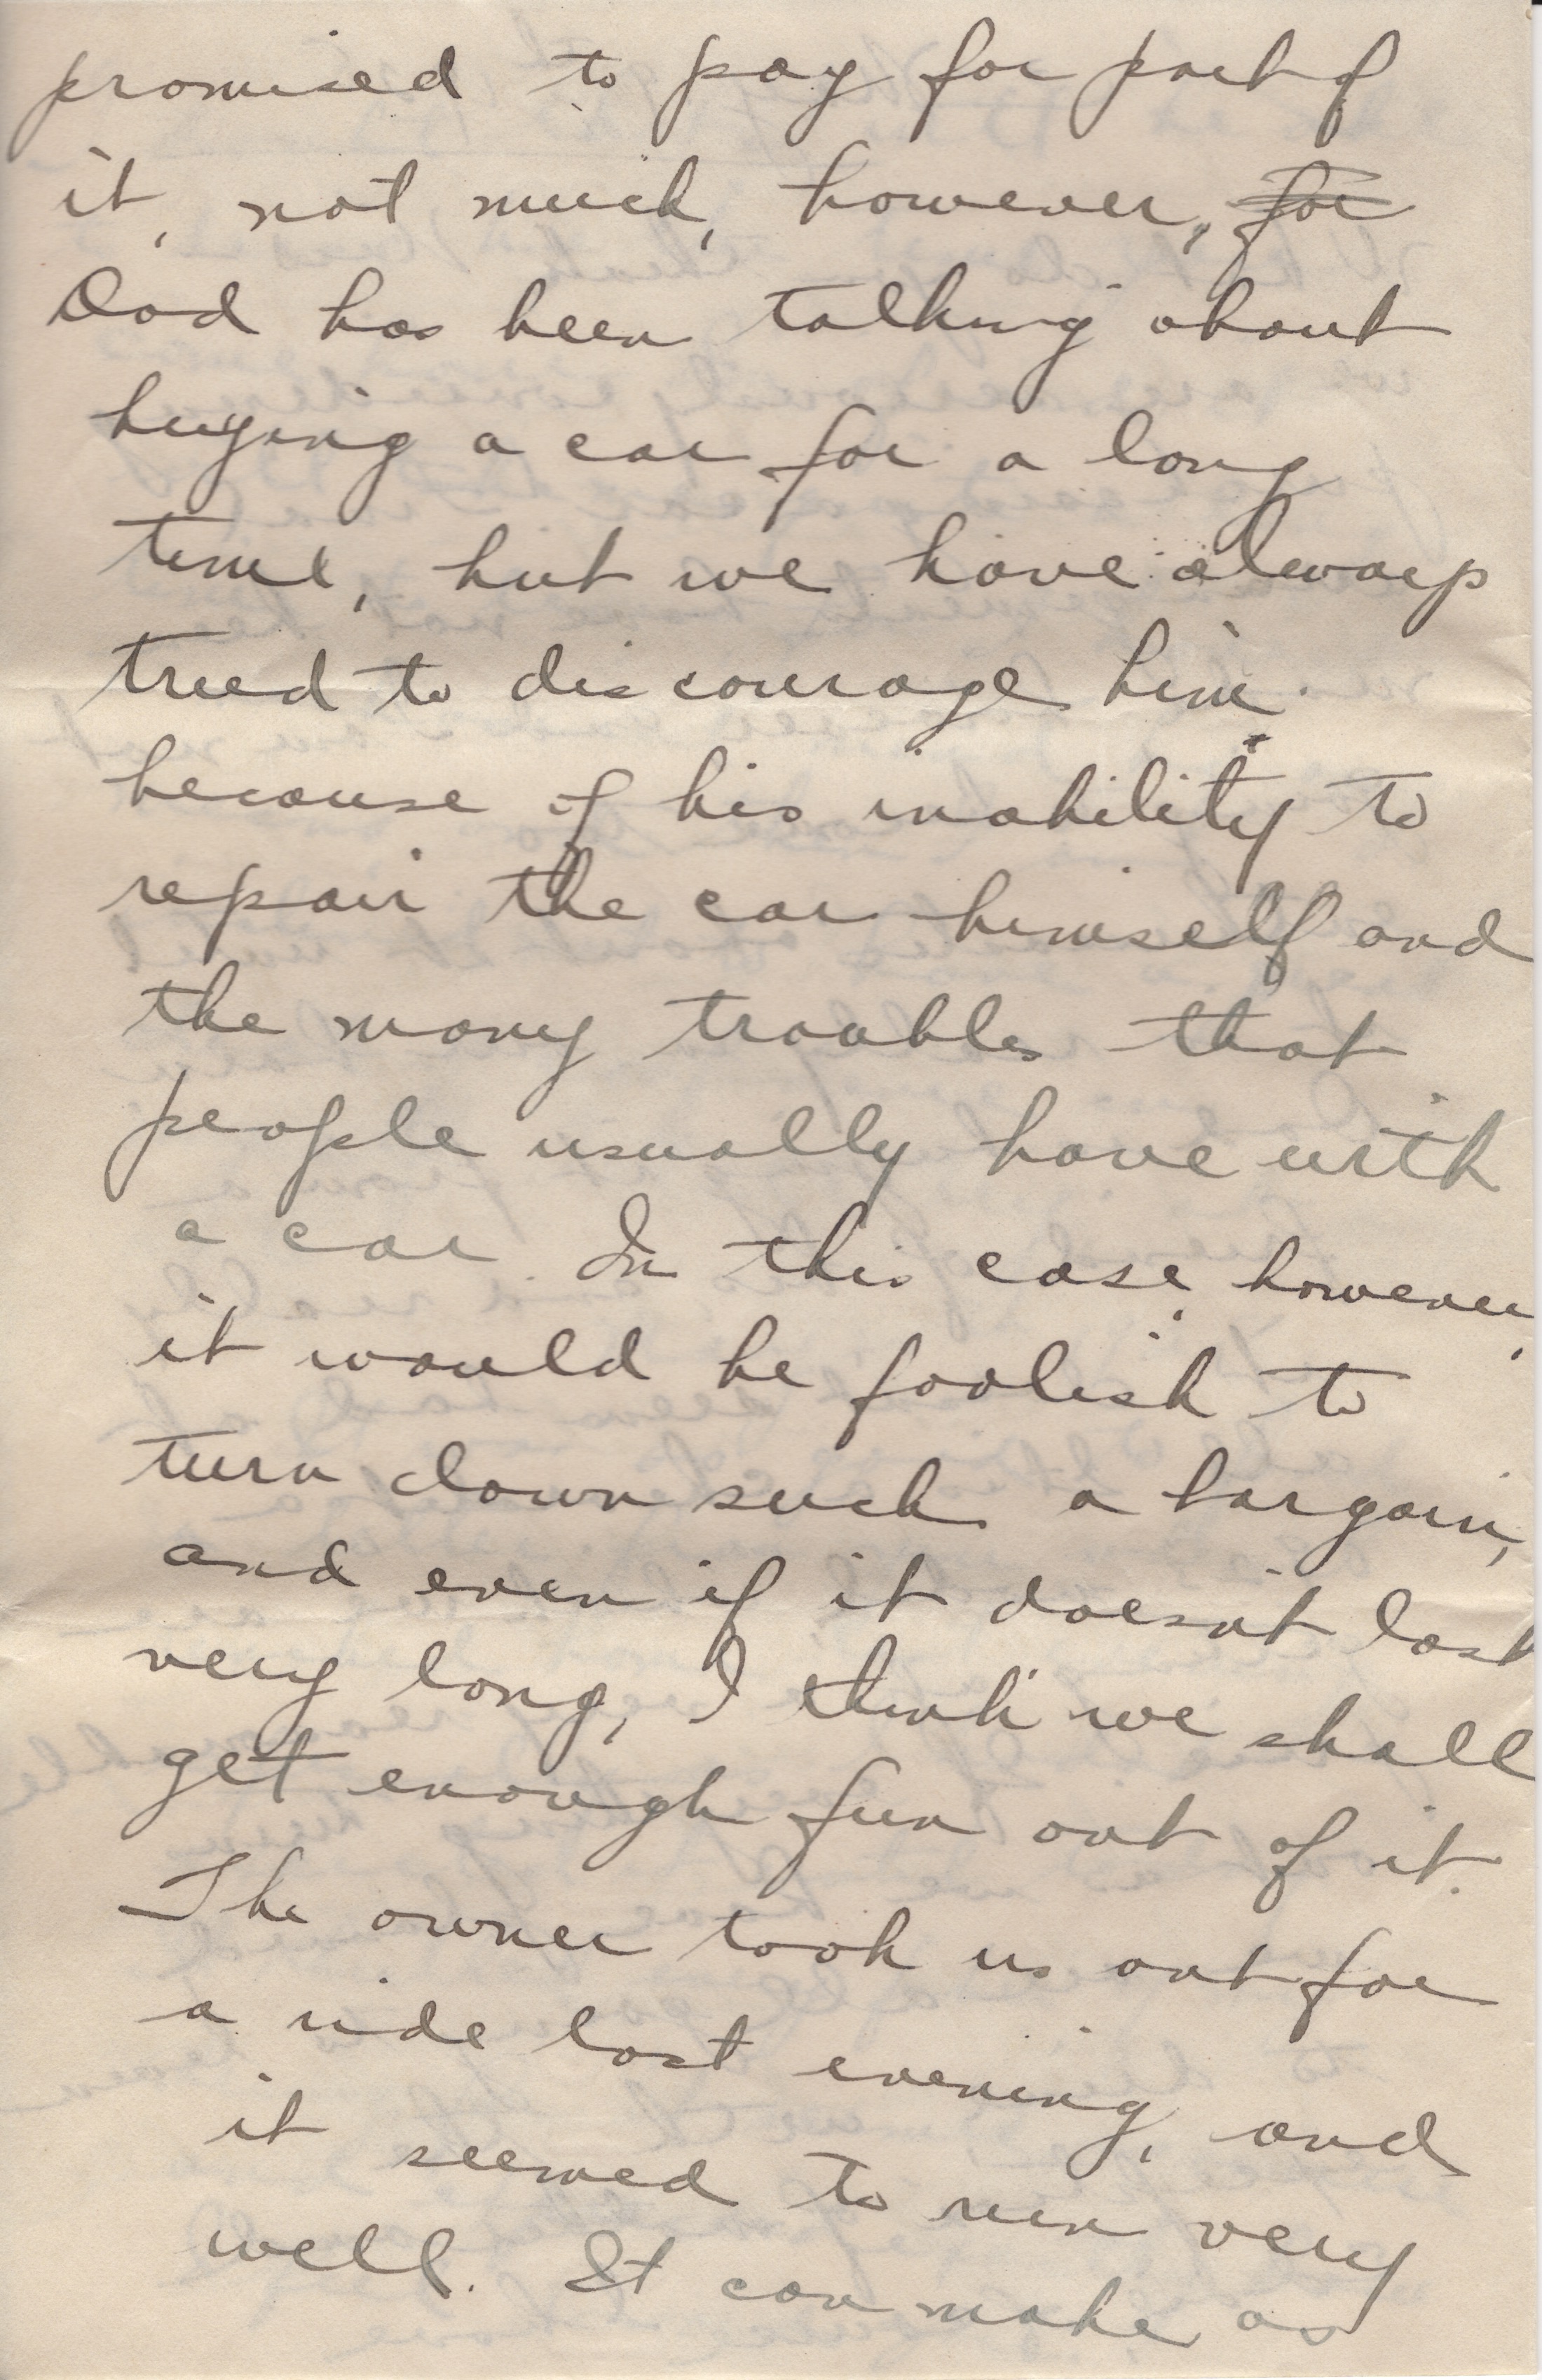 promised to pay for part of
it, not much, however, for
Dad has been talking about
buying a car for a long
time, but we have always
tried to discourage him
because of his inability to
repair the car himself and
the many troubles that
people usually have with
a car. In this case, however,
it would be foolish to
turn down such a bargain,
and even if it doesn't last
very long, I think we shall
get enough fun out of it.
The owner took us out for
a ride last evening, and
it seemed to run very
well. It can make as